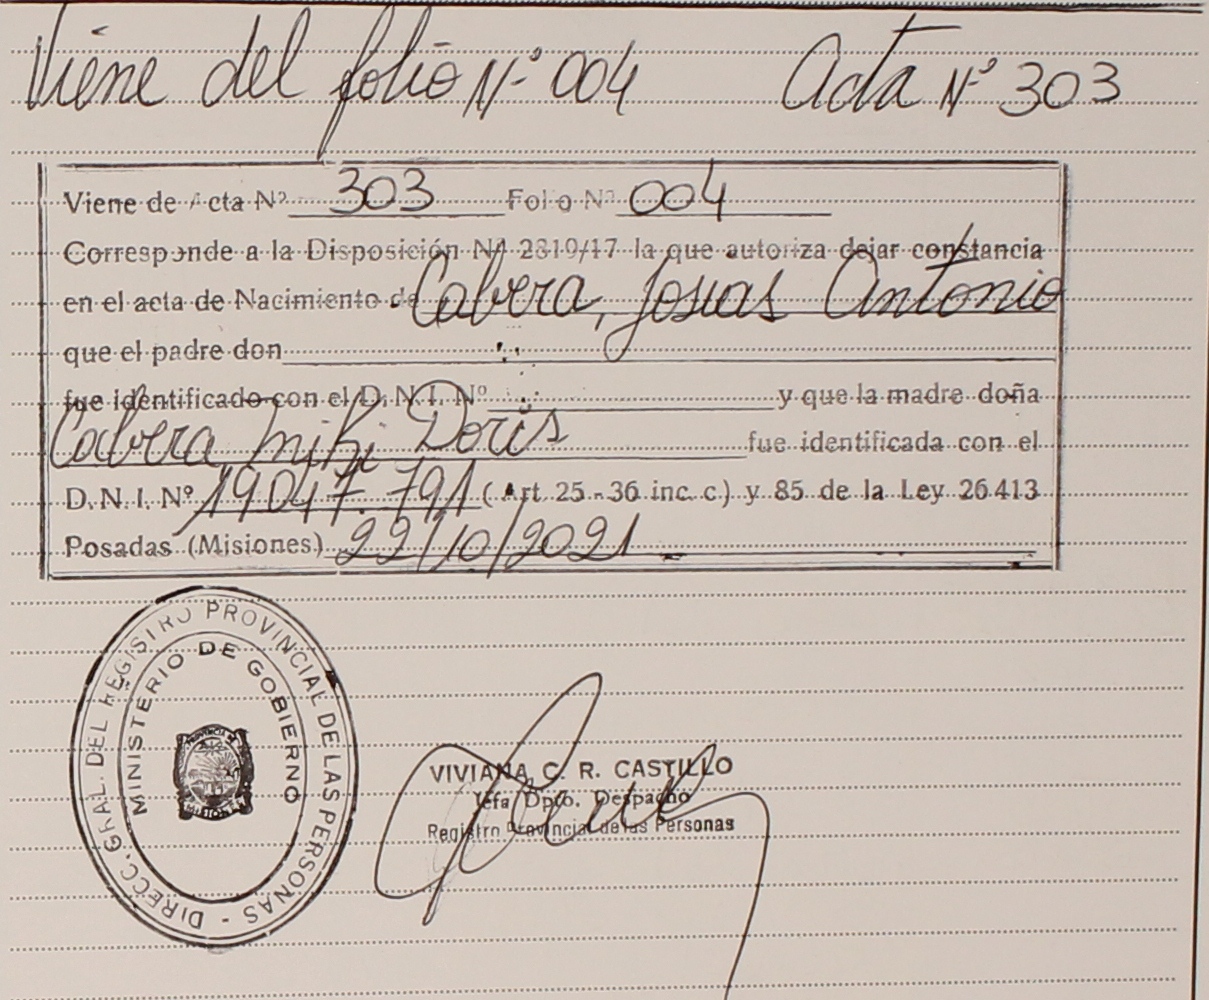 Viene del folio N° 004 Acta N° 303
Viene de Acta Nº 303 Folio Nº 004
Corresponde a la Disposición Nº 2819/17 la que autoriza dejar constancia
en el acta de Nacimiento de Cabera, Josias Antonio
que el padre don
fue identificado con el D. N. I. Nº y que la madre doña
Cabera Miki Doris fue identificada con el
D. N. I. Nº 19047.791 (Art. 25 - 36 inc. c) y 85 de la Ley 26413
Posadas (Misiones) 22/10/2021
DIRECC. GRAL. DEL REGISTRO PROVINCIAL DE LAS PERSONAS -
MINISTERIO DE GOBIERNO
PROVINCIA DE
MISIONES
VIVIANA C. R. CASTILLO
Jefa Dpto. Despacho
Registro Provincial de las Personas